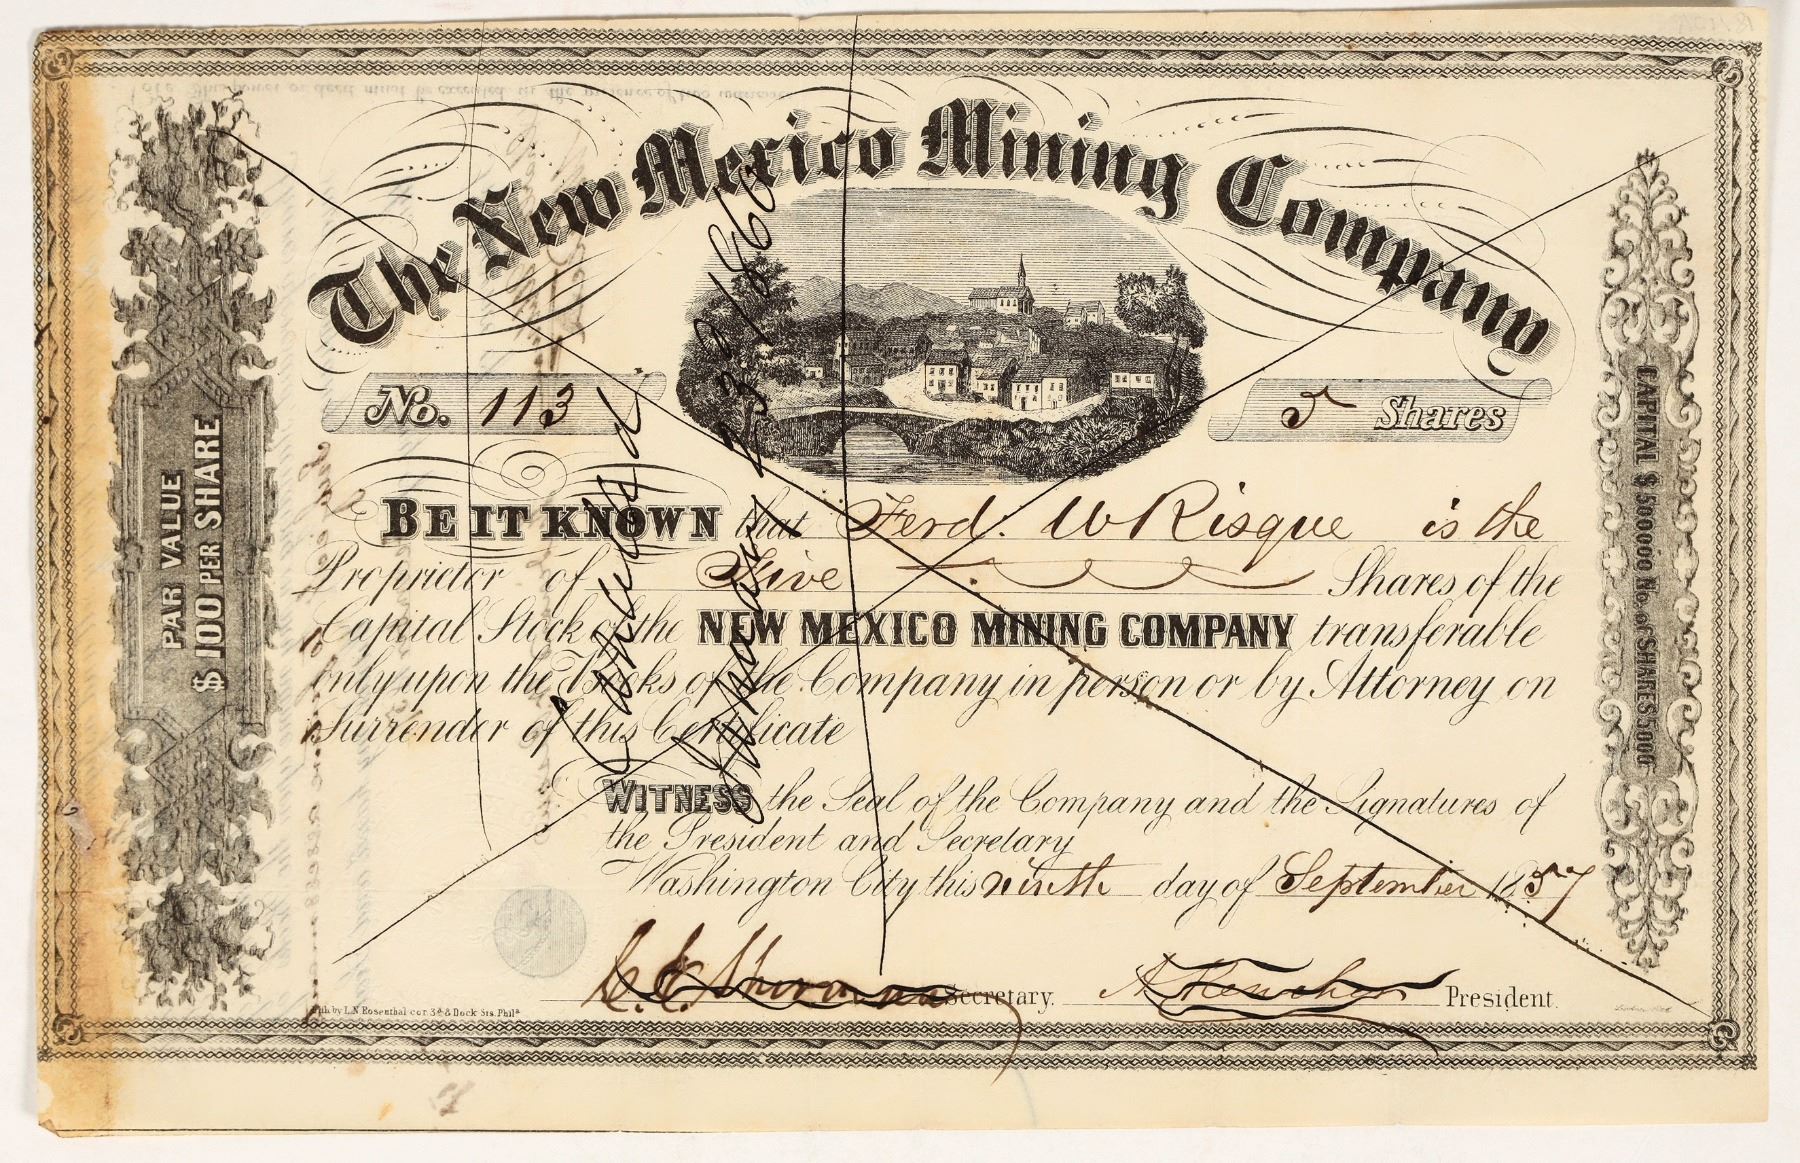 The New Mexico Mining Company
No. 113
5 Shares
PAR VALUE
$100 PER SHARE
CAPITAL $500000 No. of SHARES 5.000
BE IT KNOWN that Ferd. W Risque is the
Proprietor of Five Shares of the
Capital Stock of the NEW MEXICO MINING COMPANY transferable
only upon the Books of the Company in person or by Attorney on
Surrender of this Certificate
Cancelled
January 23d 1860
WITNESS the Seal of the Company and the Signatures of
the President and Secretary
Washington City this ninth day of September 1857
C. E. Sherman Secretary.
A Rencher President.
Lith. by L.N. Rosenthal cor. 3d & Dock Sts. Phila